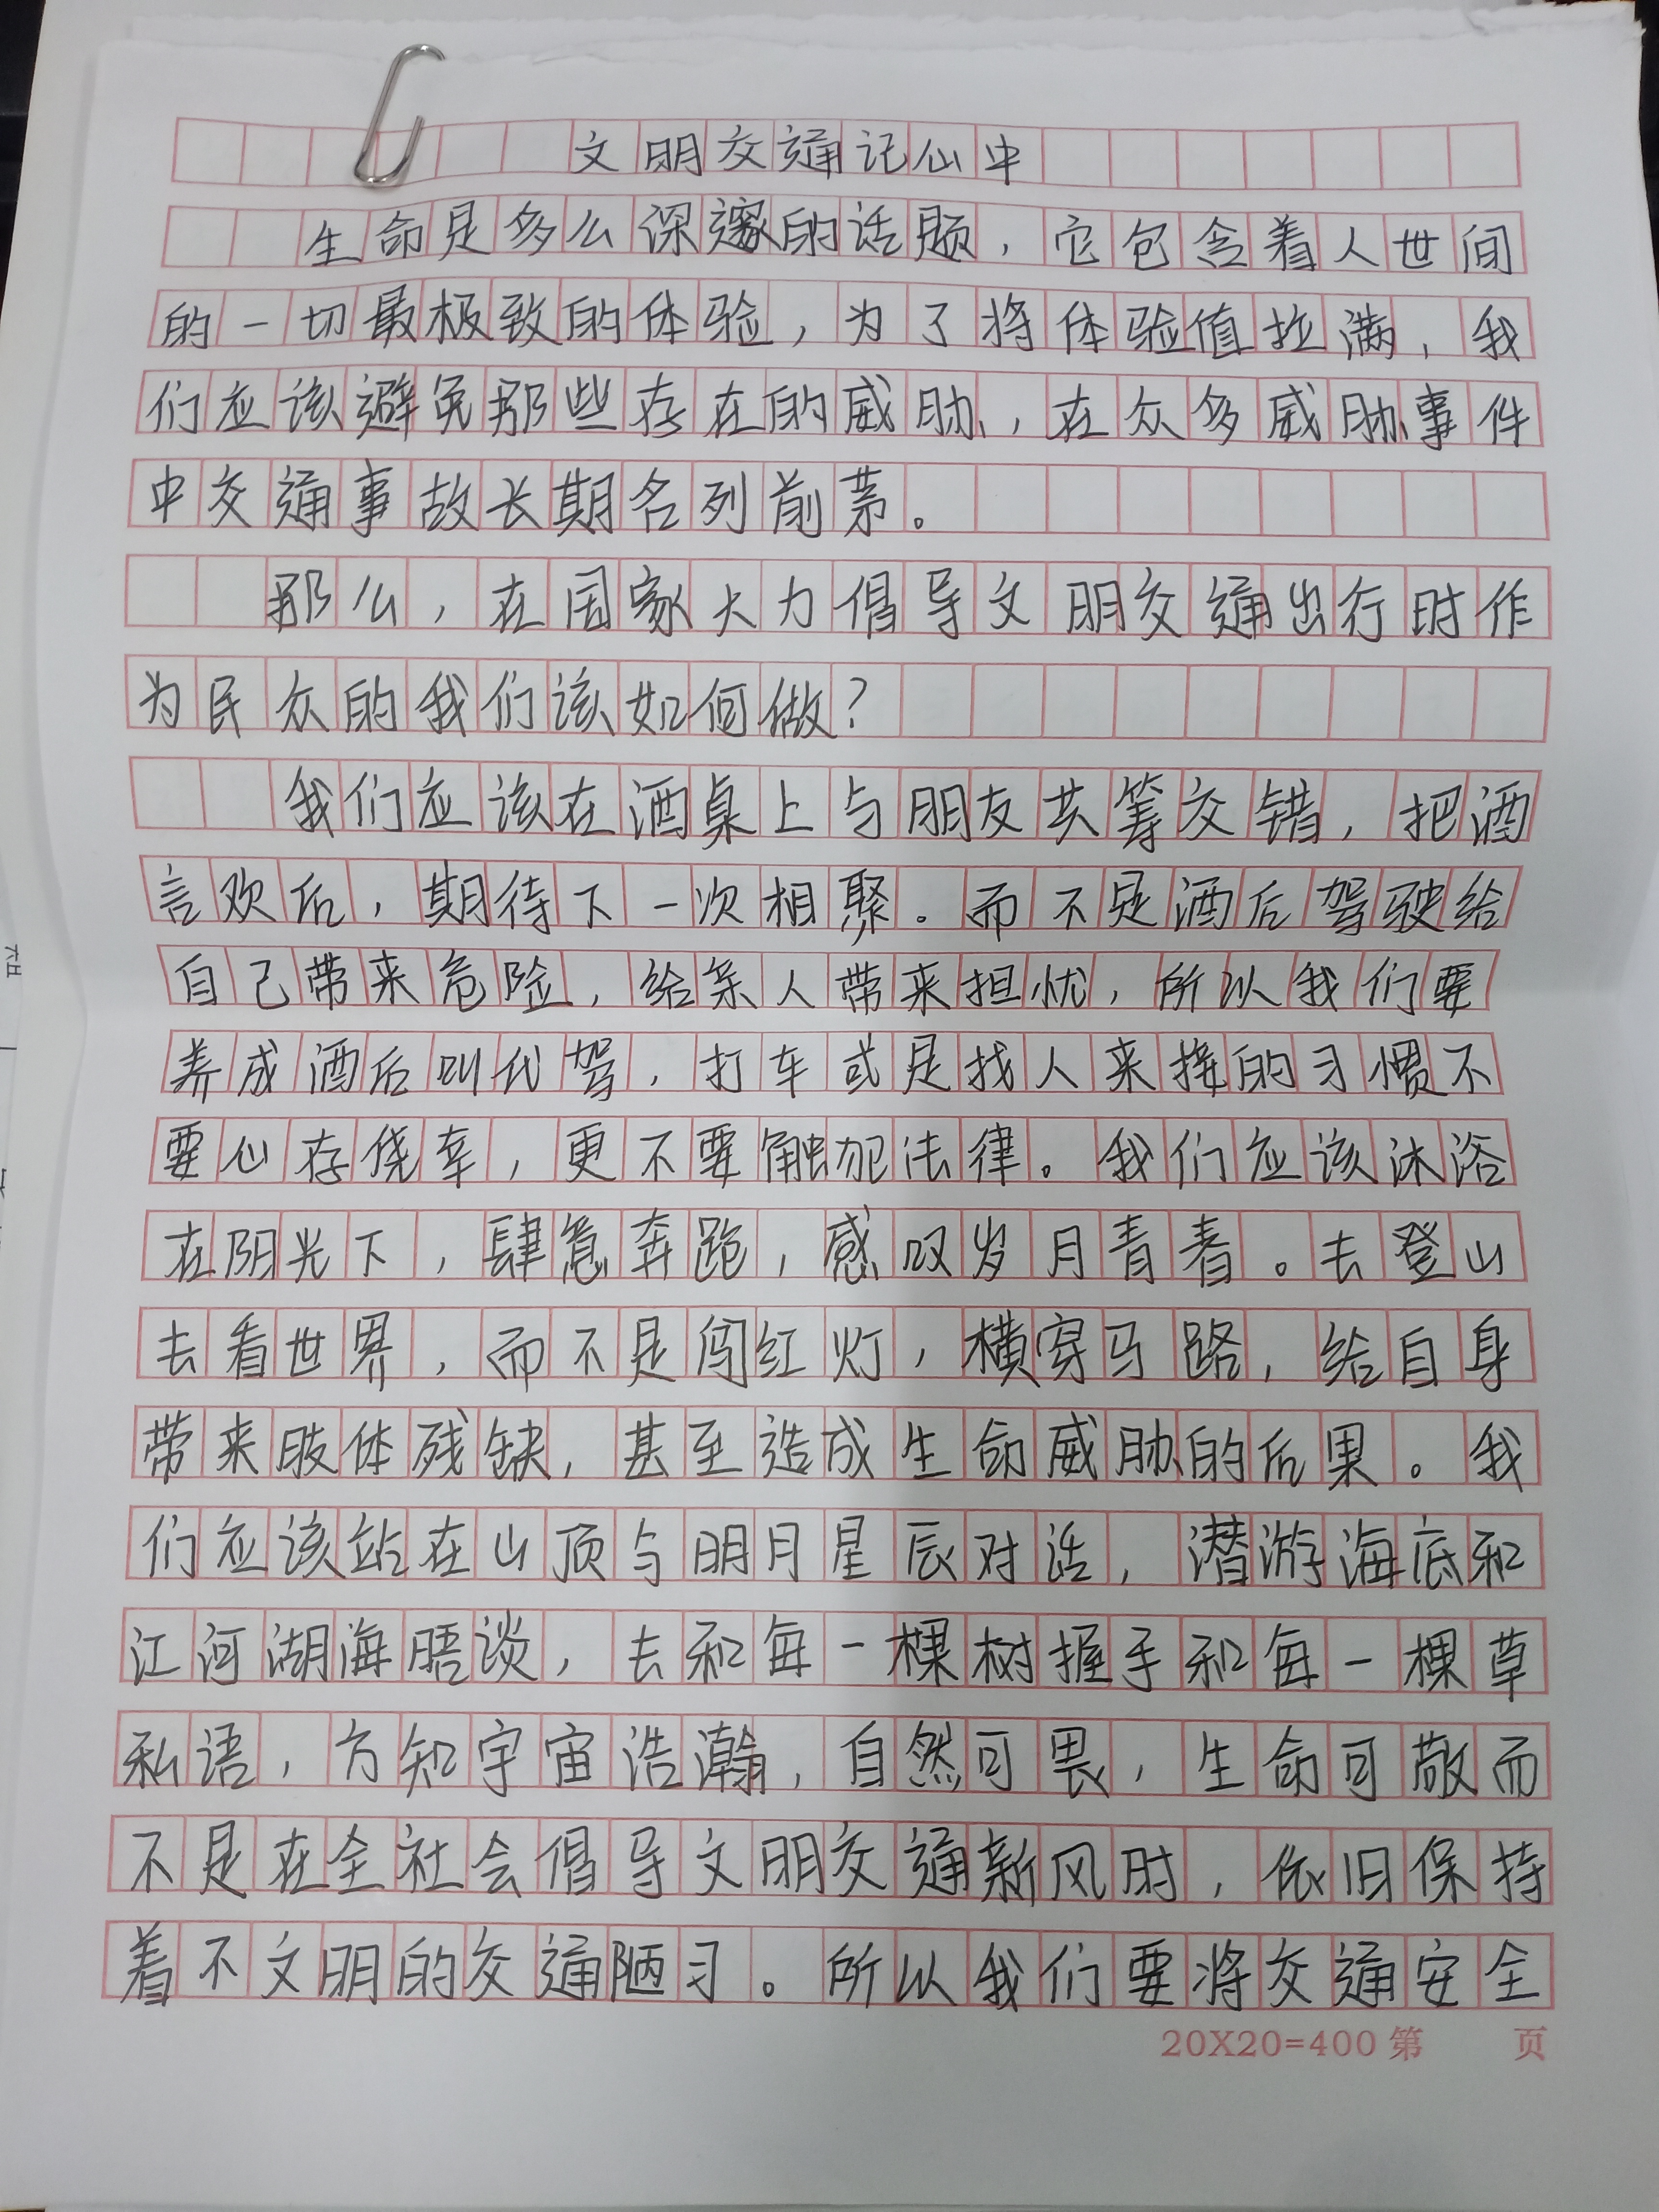 文明交通记心中
生命是多么深邃的话题，它包含着人世间
的一切最极致的体验，为了将体验值拉满，我
们应该避免那些存在的威胁，在众多威胁事件
中交通事故长期名列前茅。
那么，在国家大力倡导文明交通出行时作
为民众的我们该如何做？
我们应该在酒桌上与朋友共筹交错，把酒
言欢后，期待下一次相聚。而不是酒后驾驶给
自己带来危险，给亲人带来担忧，所以我们要
养成酒后叫代驾，打车或是找人来接的习惯不
要心存侥幸，更不要触犯法律。我们应该沐浴
在阳光下，肆意奔跑，感叹岁月青春。去登山
去看世界，而不是闯红灯，横穿马路，给自身
带来肢体残缺，甚至造成生命威胁的后果。我
们应该站在山顶与明月星辰对话，潜游海底和
江河湖海晤谈，去和每一棵树握手和每一棵草
私语，方知宇宙浩瀚，自然可畏，生命可敬而
不是在全社会倡导文明交通新风时，依旧保持
着不文明的交通陋习。所以我们要将交通安全
20X20=400 第 页